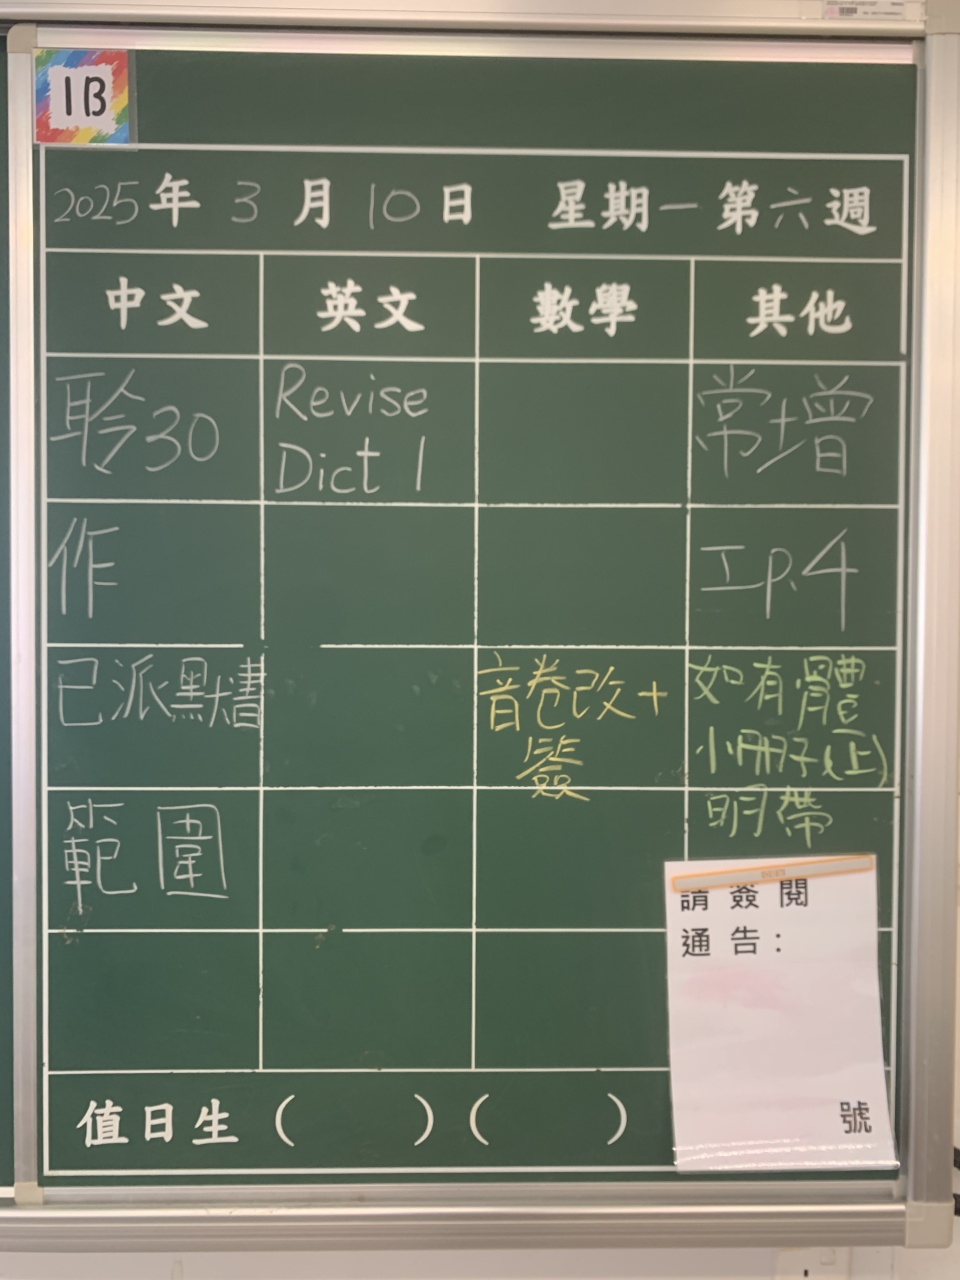 1B
2025年 3 月 10 日 星期一 第六週
中文 英文 數學 其他
聆30
作
已派默書
範圍
Revise
Dict 1
音卷改+
簽
常增
工p.4
如有體
小冊子(正)
明帶
請簽閱
通告:
號
值日生 ( ) ( )